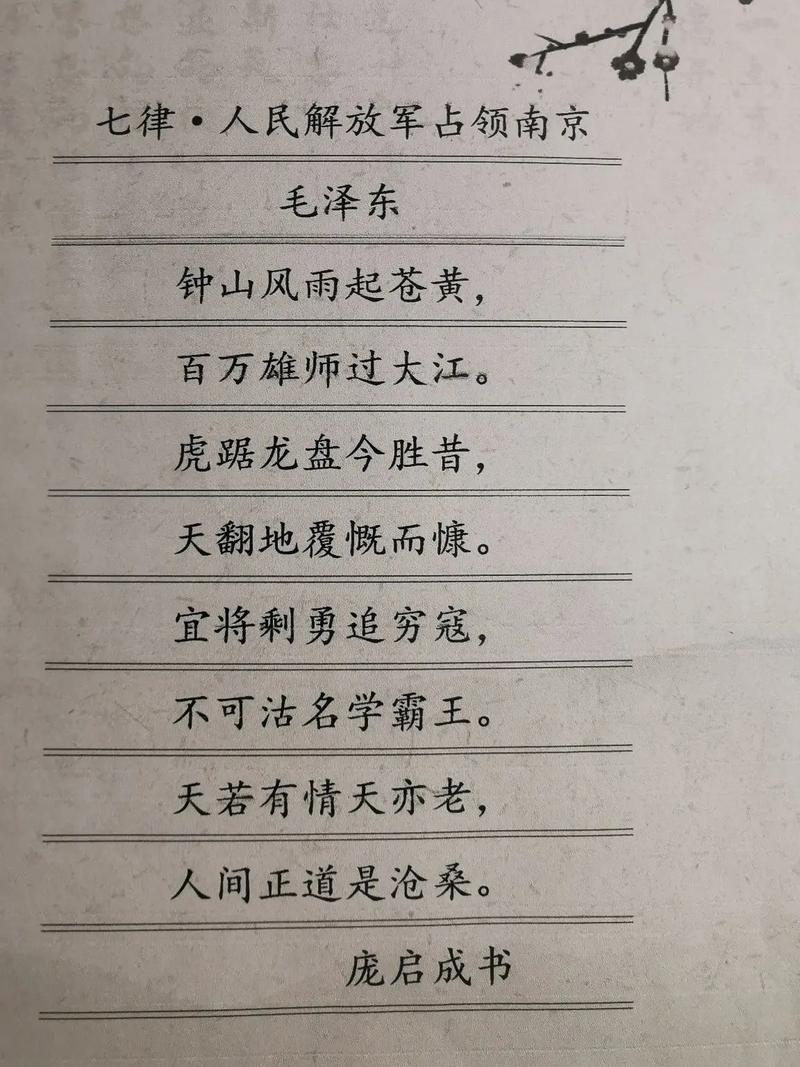 七律·人民解放军占领南京
毛泽东
钟山风雨起苍黄，
百万雄师过大江。
虎踞龙盘今胜昔，
天翻地覆慨而慷。
宜将剩勇追穷寇，
不可沽名学霸王。
天若有情天亦老，
人间正道是沧桑。
庞启成书